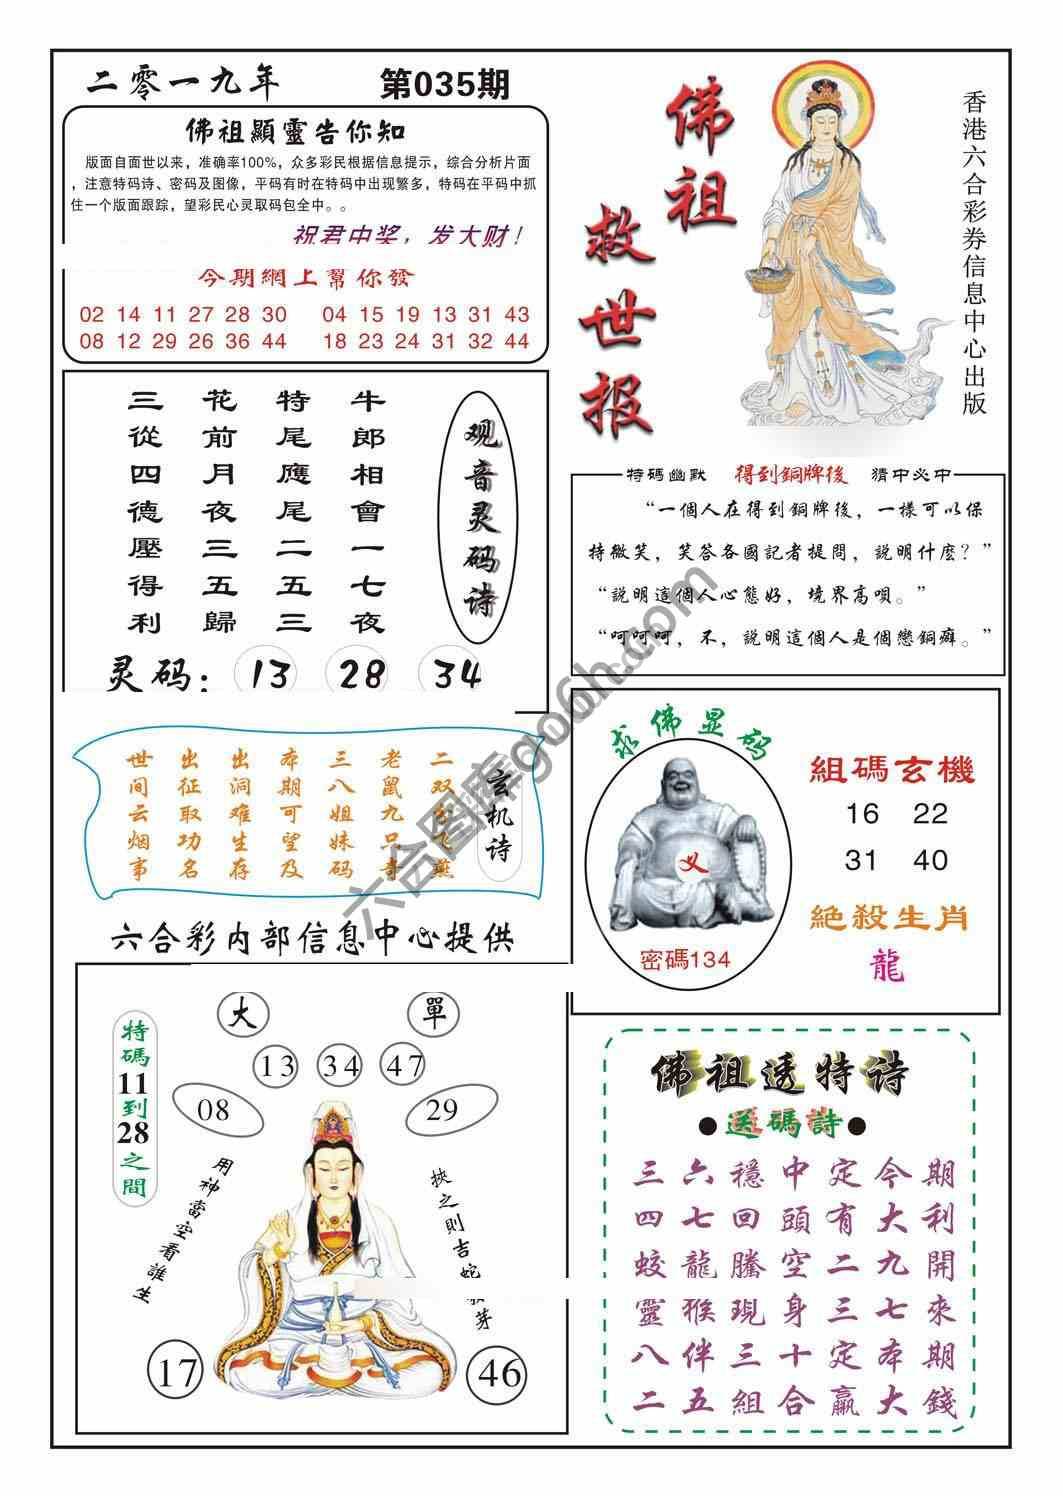 二零一九年 第035期
佛祖顯靈告你知
版面自面世以来，准确率100%，众多彩民根据信息提示，综合分析片面
，注意特码诗、密码及图像，平码有时在特码中出现繁多，特码在平码中抓
住一个版面跟踪，望彩民心灵取码包全中。。
祝君中奖，发大财！
今期網上幫你發
02 14 11 27 28 30 04 15 19 13 31 43
08 12 29 26 36 44 18 23 24 31 32 44
佛祖
救世报
香港六合彩券信息中心出版
观音灵码诗
牛郎相會一七夜
特尾應尾二五三
花前月夜三五歸
三從四德壓得利
灵码：13 28 34
特碼幽默 得到銅牌後 猜中必中
“一個人在得到銅牌後，一樣可以保
持微笑，笑答各國記者提問，説明什麼？”
“説明這個人心態好，境界高唄。”
“呵呵呵，不，説明這個人是個戀銅癖。”
玄机诗
二双飞燕
老鼠九只奇
三八姐妹码
本期可望及
出洞难生存
出征取功名
世间云烟事
求佛显码
义
密碼134
組碼玄機
16 22
31 40
絶殺生肖
龍
六合彩内部信息中心提供
大 單
13 34 47
08 29
特碼11到28之間
用神當空看誰生
挾之則吉蛇芽
17 46
佛祖透特诗
●送碼詩●
三六穩中定今期
四七回頭有大利
蛟龍騰空二九開
靈猴現身三七來
八伴三十定本期
二五組合贏大錢
六合图库go6h.com